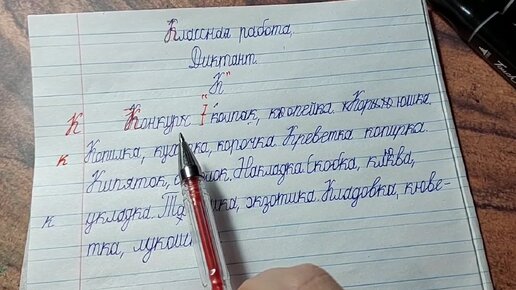 Классная работа.
Диктант.
"К"
К Конкурс колпак, копейка. Корюшка.
к Копилка, корочка. Креветка копирка.
Кипяток, Накладка скобка, клюква,
к укладка. экзотика. Кладовка, кюве-
тка,